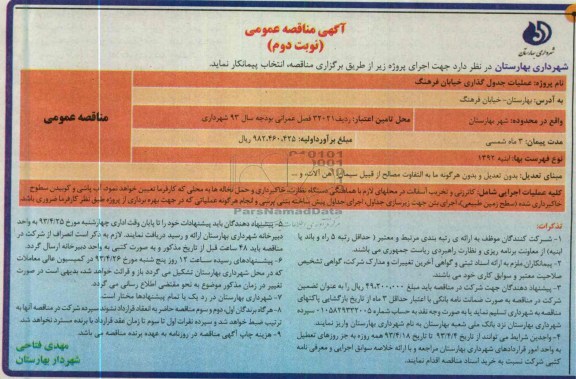 آگهی مناقصه عمومی
(نوبت دوم)
شهرداری بهارستان
شهرداری بهارستان در نظر دارد جهت اجرای پروژه زیر از طریق برگزاری مناقصه، انتخاب پیمانکار نماید.
مناقصه عمومی
نام پروژه: عملیات جدول گذاری خیابان فرهنگ
به آدرس: بهارستان- خیابان فرهنگ
واقع در محدوده: شهر بهارستان
محل تامین اعتبار: ردیف ۳۲۰۲۱ فصل عمرانی بودجه سال ۹۳ شهرداری
مدت پیمان: ۳ ماه شمسی
مبلغ برآورد اولیه: ۹۸۲،۴۶۰،۴۲۵ ریال
نوع فهرست بها: ابنیه ۱۳۹۲
مبنای تعدیل: بدون تعدیل و بدون هرگونه ما به التفاوت مصالح از قبیل سیمان، آهن آلات، و ...
کلیه عملیات اجرایی شامل: کانیرنی و تخریب آسفالت در محلهای لازم با هماهنگی دستگاه نظارت، خاکبرداری و حمل نخاله ها به محلی که کارفرما تعیین خواهد نمود، آب پاشی و کوبیدن سطوح
خاکبرداری شده (سطح زمین طبیعی)، اجرای بتن جهت زیرسازی جداول، اجرای جداول پیش ساخته بتنی پرسی و انجام هرگونه عملیاتی که در جهت بهره برداری از پروژه طبق نظر کارفرما ضروری باشد.
ParsNamadData
تذکرات:
۱- شرکت کنندگان موظف به ارائه ی رتبه بندی مرتبط و معتبر ( حداقل رتبه ۵ راه و باند یا
ابنیه) از معاونت برنامه ریزی و نظارت راهبردی ریاست جمهوری می باشند.
۲- پیمانکاران ملزم به ارائه اسناد ثبتی و گواهی آخرین تغییرات و مدارک شرکت، گواهی تشخیص
صلاحیت معتبر و سوابق کاری خود می باشند.
۳- پیشنهاد دهندگان جهت شرکت در مناقصه باید مبلغ ۴۹،۲۰۰،۰۰۰ ریال را به عنوان تضمین
شرکت در مناقصه به صورت ضمانت نامه بانکی با اعتبار حداقل ۳ ماه از تاریخ بازگشایی پاکتهای
مناقصه به شهرداری تسلیم نماید یا به صورت وجه نقد به حساب شماره ۰۱۰۵۸۲۹۳۳۲۰۰۵ سپرده
شهرداری بهارستان نزد بانک ملی شعبه بهارستان به نام شهرداری بهارستان واریز نمایند.
۴- واجدین شرایط می توانند از تاریخ ۹۳/۴/۴ تا تاریخ ۹۳/۴/۱۸ همه روزه به جز روزهای تعطیل
به واحد امور قراردادهای شهرداری بهارستان مراجعه و با ارائه خلاصه سوابق اجرایی و معرفی نامه
کتبی شرکت نسبت به خرید اسناد مناقصه اقدام نمایند.
۵- پیشنهاد دهندگان باید پیشنهادات خود را تا پایان وقت اداری چهارشنبه مورخ ۹۳/۴/۲۵ به واحد
دبیرخانه شهرداری بهارستان ارائه و رسید دریافت نمایند. لازم به ذکر است انصراف از شرکت در
مناقصه باید ۴۸ ساعت قبل از تاریخ مذکور و به صورت کتبی به واحد دبیرخانه ارسال گردد.
۶- پیشنهادهای رسیده ساعت ۱۲ روز پنج شنبه مورخ ۹۳/۴/۲۶ در کمیسیون عالی معاملات
که در محل شهرداری بهارستان تشکیل می گردد باز و قرائت خواهد شد، بدیهی است در صورت
تغییر در زمان مذکور موضوع به نحو مقتضی اطلاع رسانی می گردد.
۷- شهرداری بهارستان در رد یک یا تمام پیشنهادها مختار است.
۸- هرگاه برندگان اول، دوم و سوم مناقصه حاضر به انعقاد قرارداد نشوند سپرده شرکت در مناقصه آنها به
ترتیب ضبط خواهد شد و سپرده نفرات اول تا سوم تا زمان عقد قرارداد با برنده مسترد نخواهد شد.
۹- هزینه چاپ آگهی مناقصه در روزنامه به عهده برنده مناقصه می باشد.
مهدی فتاحی
شهردار بهارستان